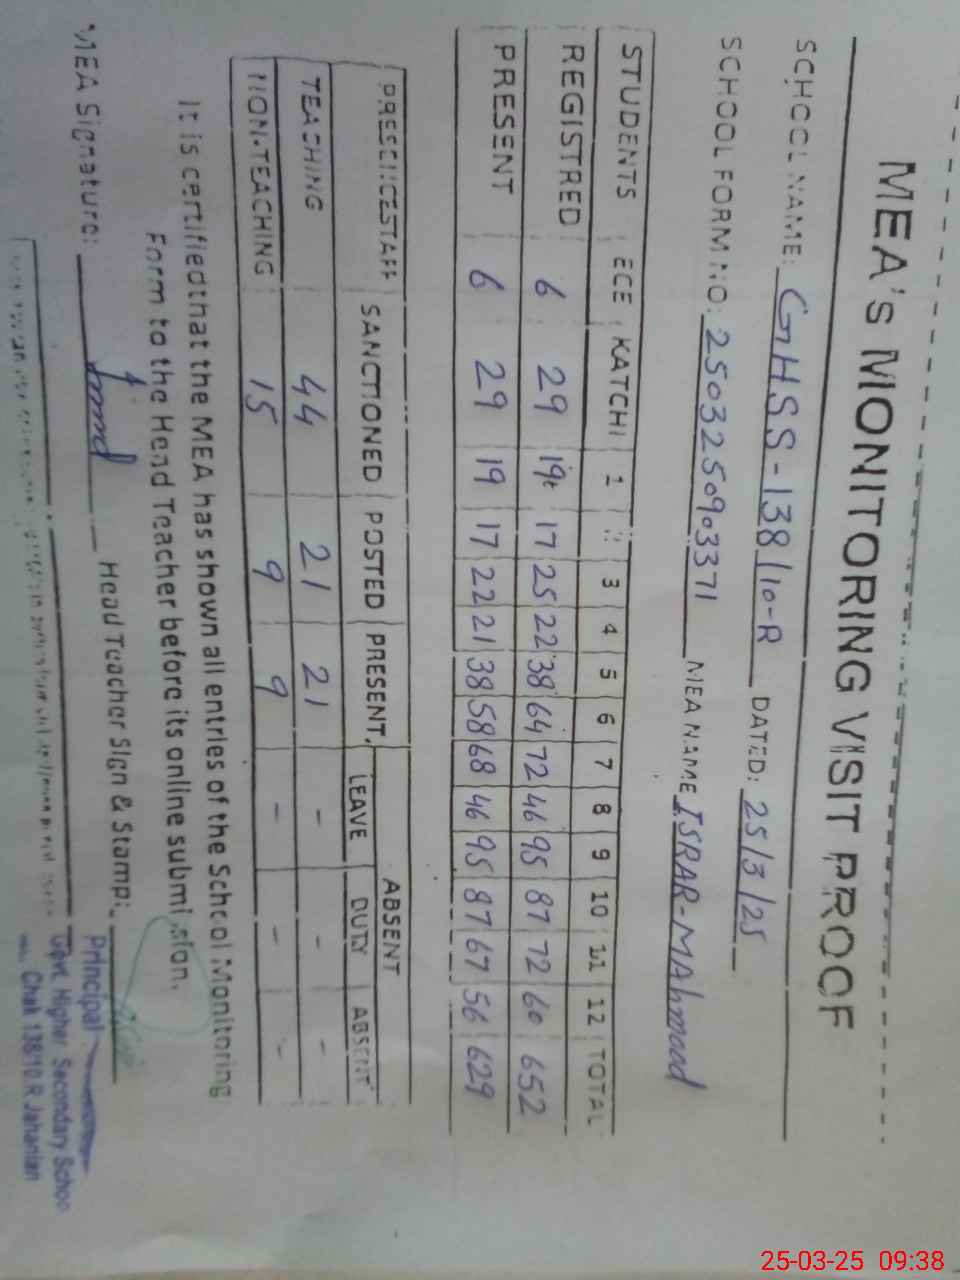 MEA's MONITORING VISIT PROOF
SCHOOL NAME: GHSS-138/10-R DATED: 25/3/25
SCHOOL FORM NO: 2503250903371 MEA NAME ISRAR-MAhmood
STUDENTS ECE KATCHI 1 2 3 4 5 6 7 8 9 10 11 12 TOTAL
REGISTRED 6 29 19 17 25 22 38 64 72 46 95 87 72 60 652
PRESENT 6 29 19 17 22 21 38 58 68 46 95 87 67 56 629
PRESENCE STAFF SANCTIONED POSTED PRESENT ABSENT
LEAVE DUTY ABSENT
TEACHING 44 21 21 - - -
NON-TEACHING 15 9 9 - - -
It is certified that the MEA has shown all entries of the School Monitoring
Form to the Head Teacher before its online submission.
MEA Signature: Head Teacher Sign & Stamp:
Principal
Govt. Higher Secondary Schoo
Chak 138/10.R Jahanian
25-03-25 09:38